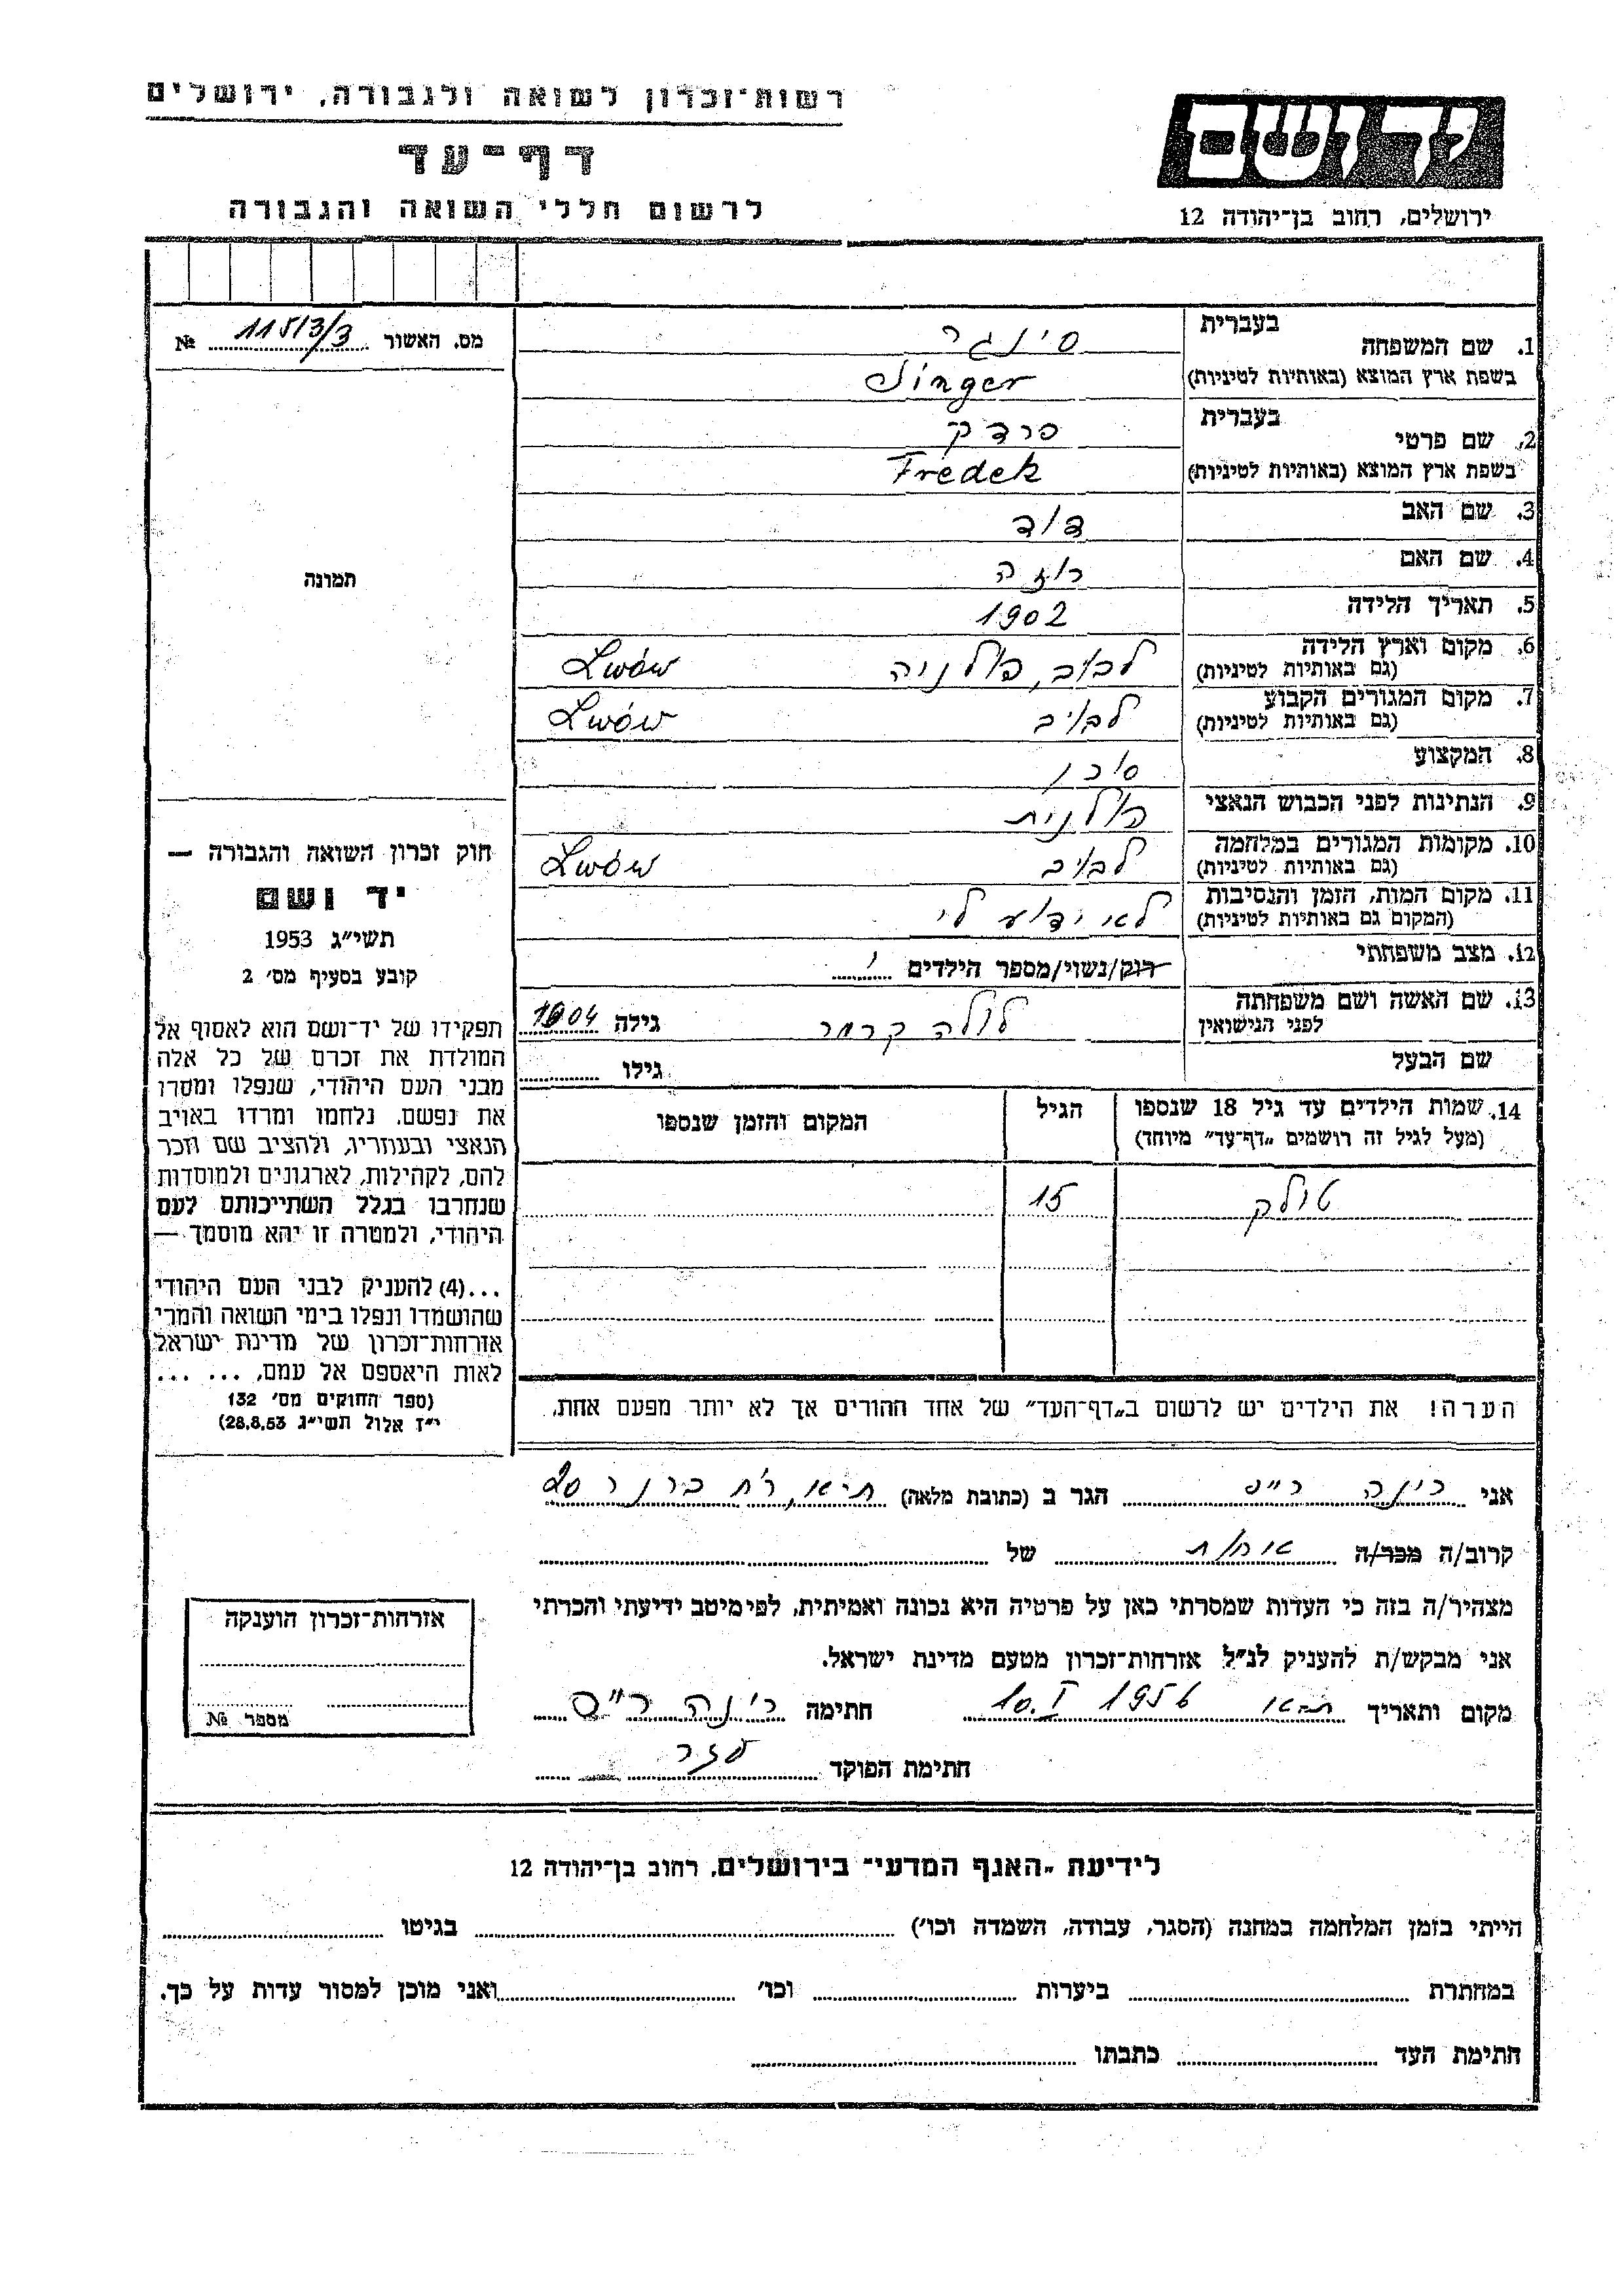 רשות-זכרון לשואה ולגבורה, ירושלים
דף-עד
לרשום חללי השואה והגבורה
יד ושם
ירושלים, רחוב בן-יהודה 12
מס. האשור 11513/3 №
תמונה
חוק זכרון השואה והגבורה —
יד ושם
תשי״ג 1953
קובע בסעיף מס׳ 2
תפקידו של יד-ושם הוא לאסוף אל
המולדת את זכרם של כל אלה
מבני העם היהודי, שנפלו ומסרו
את נפשם, נלחמו ומרדו באויב
הנאצי ובעוזריו, ולהציב שם וזכר
להם, לקהילות, לארגונים ולמוסדות
שנחרבו בגלל השתייכותם לעם
היהודי, ולמטרה זו יהא מוסמך —
...(4) להעניק לבני העם היהודי
שהושמדו ונפלו בימי השואה והמרי
אזרחות-זכרון של מדינת ישראל
לאות היאספם אל עמם, ... ...
(ספר החוקים מס׳ 132
י״ז אלול תשי״ג 28.8.53)
1. שם המשפחה בעברית סינגר
בשפת ארץ המוצא (באותיות לטיניות) Singer
2. שם פרטי בעברית פרדק
בשפת ארץ המוצא (באותיות לטיניות) Fredek
3. שם האב דוד
4. שם האם רוזה
5. תאריך הלידה 1902
6. מקום וארץ הלידה (גם באותיות לטיניות) לבוב, פולניה Lwów
7. מקום המגורים הקבוע (גם באותיות לטיניות) לבוב Lwów
8. המקצוע סוכן
9. הנתינות לפני הכבוש הנאצי פולנית
10. מקומות המגורים במלחמה (גם באותיות לטיניות) לבוב Lwów
11. מקום המות, הזמן והנסיבות (המקום גם באותיות לטיניות) לא ידוע לי
12. מצב משפחתי רוק/נשוי/מספר הילדים 1
13. שם האשה ושם משפחתה לפני הנישואין לולה קרמר גילה 1904
שם הבעל גילו
14. שמות הילדים עד גיל 18 שנספו (מעל לגיל זה רושמים „דף-עד״ מיוחד) הגיל המקום והזמן שנספו
טולק 15
הערה! את הילדים יש לרשום ב„דף-העד״ של אחד ההורים אך לא יותר מפעם אחת.
אני הגר ב (כתובת מלאה) ברנר 20
קרוב/ה מכר/ה אחות של
מצהיר/ה בזה כי העדות שמסרתי כאן על פרטיה היא נכונה ואמיתית, לפי מיטב ידיעתי והכרתי
אני מבקש/ת להעניק לנ״ל אזרחות-זכרון מטעם מדינת ישראל.
מקום ותאריך 10.I 1956 חתימה
חתימת הפוקד
אזרחות-זכרון הוענקה
מספר №
לידיעת „האגף המדעי״ בירושלים, רחוב בן-יהודה 12
הייתי בזמן המלחמה במחנה (הסגר, עבודה, השמדה וכו׳) בגיטו
במחתרת ביערות וכו׳ ואני מוכן למסור עדות על כך.
חתימת העד כתבתו